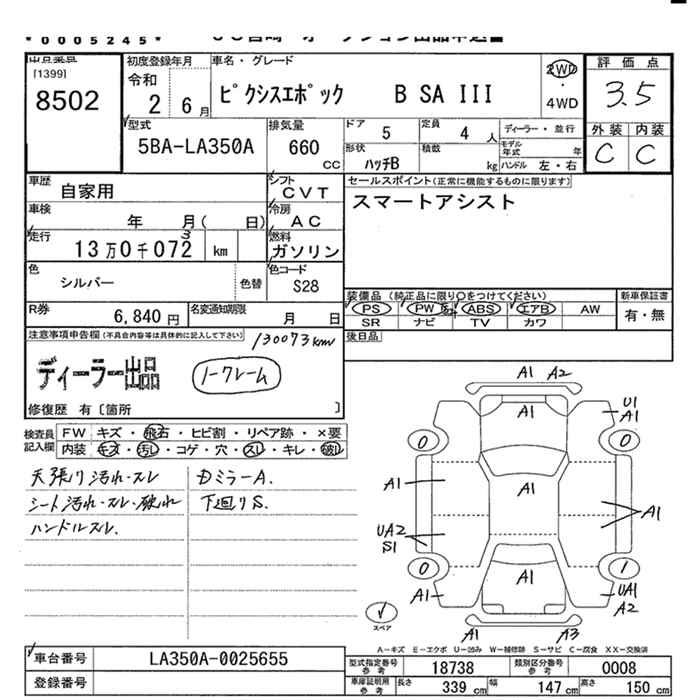 *0005245*
[1399]
8502
初度登録年月
令和
2 6月
車名・グレード
ピクシスエポック B SA III
2WD
・
4WD
評価点
3.5
外装 内装
C C
型式
5BA-LA350A
排気量
660
CC
ドア
5
定員
4 人
形状
ハッチB
積数
kg
ディーラー・並行
モデル年式 年
ハンドル 左・右
車歴
自家用
シフト
CVT
車検
年 月( 日)
冷房
AC
走行
13万0千072 km
3
燃料
ガソリン
色
シルバー
色替
色コード
S28
セールスポイント(正常に機能するものに限ります)
スマートアシスト
装備品(純正品に限り○をつけてください)
PS PW ABS エアB AW
SR ナビ TV カワ
新車保証書
有・無
R券
6,840 円
名変通知期限
月 日
後日品
注意事項申告欄(不具合内容等は具体的に記入して下さい)
130073km
ディーラー出品
ノークレーム
修復歴 有〔箇所 〕
検査員
記入欄
FW キズ・飛石・ヒビ割・リペア跡・×要
内装 キズ・汚レ・コゲ・穴・スレ・キレ・破レ
天張り汚れ・スレ
シート汚れ・スレ・破れ
ハンドルスレ.
DミラーA.
下廻りS.
A1 A2
U1
A1
A1
0 0
A1
A1
A1
A1
UA2
S1
0 1
A1
A1
UA1
A2
A1 A3
スペア
A-キズ E-エクボ U-凹み W-補修跡 S-サビ C-腐食 XX-交換済
車台番号
LA350A-0025655
登録番号
型式指定番号
参考
18738
類別区分番号
参考
0008
車庫証明用
参考
長さ
339 cm
幅
147 cm
高さ
150 cm